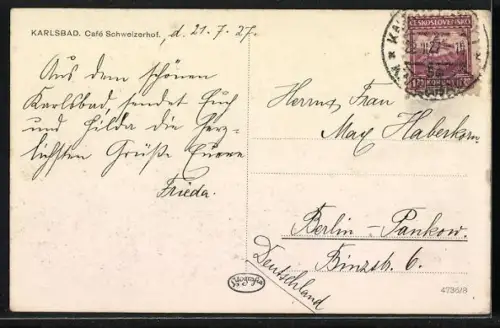 KARLSBAD. Café Schweizerhof. d. 21.7.27.
Aus dem schönen
Karlsbad, sendet Euch
und Hilda die herz-
lichsten Grüße Euere
Frieda.
ČESKOSLOVENSKO
Herrn u. Frau
Max Haberkorn
Berlin-Pankow.
Binzstr. 6.
Deutschland
Fotografia
4736/8